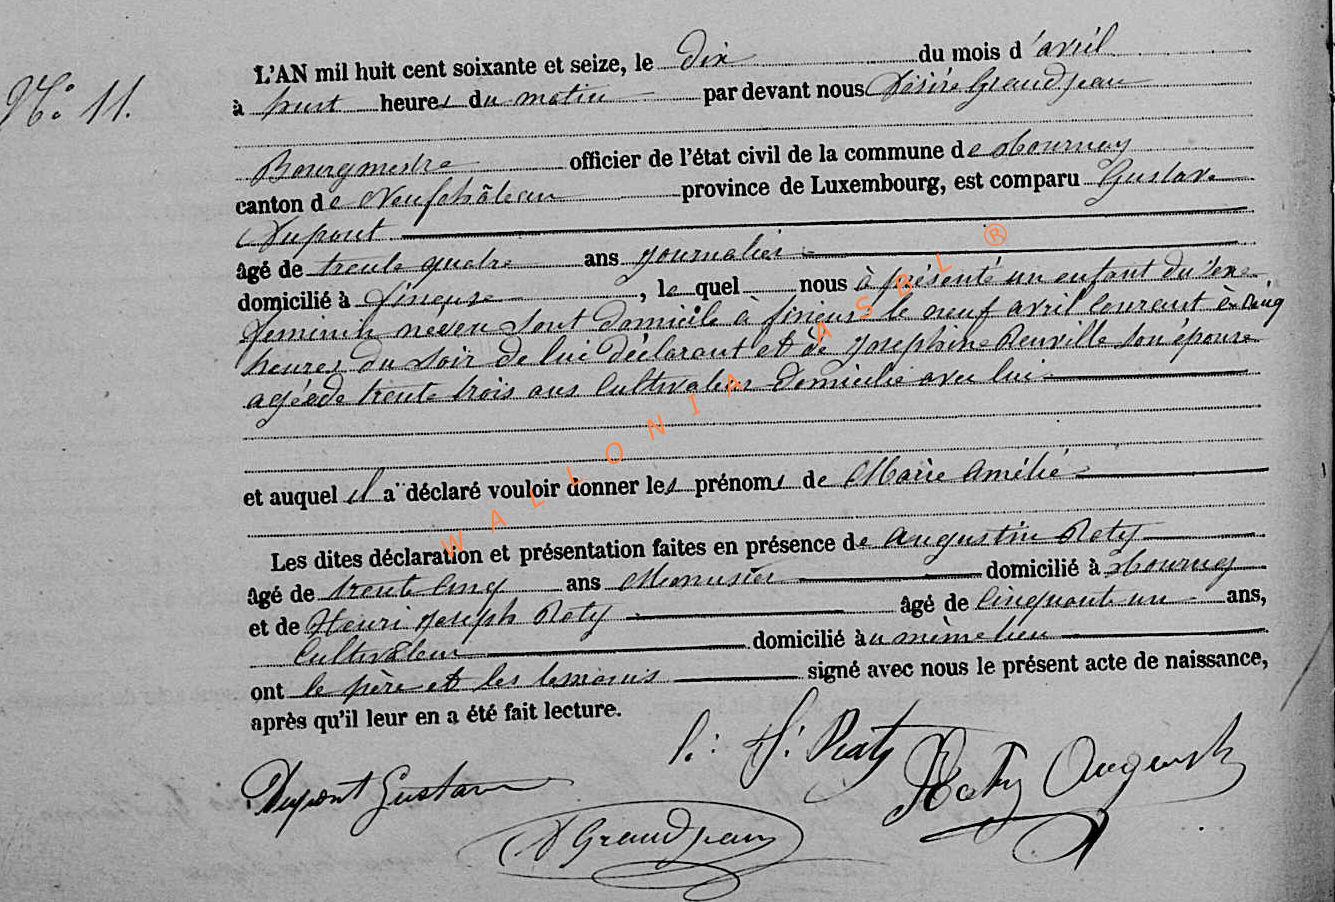 N.° 11.
L'AN mil huit cent soixante et seize, le dix du mois d'avril
à huit heures du matin par devant nous Désiré Grandjean
Bourgmestre officier de l'état civil de la commune de Tournay
canton de Neufchâteau province de Luxembourg, est comparu Gustave
Dupont
âgé de trente quatre ans journalier
domicilié à Fineuse, lequel nous à présenté un enfant du sexe
feminin née en sont domicile à fineuse le neuf avril courant à Cinq
heures du soir de lui déclarant et de Joséphine Renville son épouse
agée de trente trois ans Cultivateur domicilié avec lui
et auquel il a déclaré vouloir donner les prénoms de Marie Amélie
Les dites déclaration et présentation faites en présence de Augustin Roty
âgé de trente Cinq ans Menusier domicilié à Tournay
et de Henri Joseph Roty âgé de Cinquante un ans,
Cultivateur domicilié au même lieu
ont le père et les temoins signé avec nous le présent acte de naissance,
après qu'il leur en a été fait lecture.
H: J: Roty
Dupont Gustave
Roty Augustin
D Grandjean
WALLONIA ASBL ®